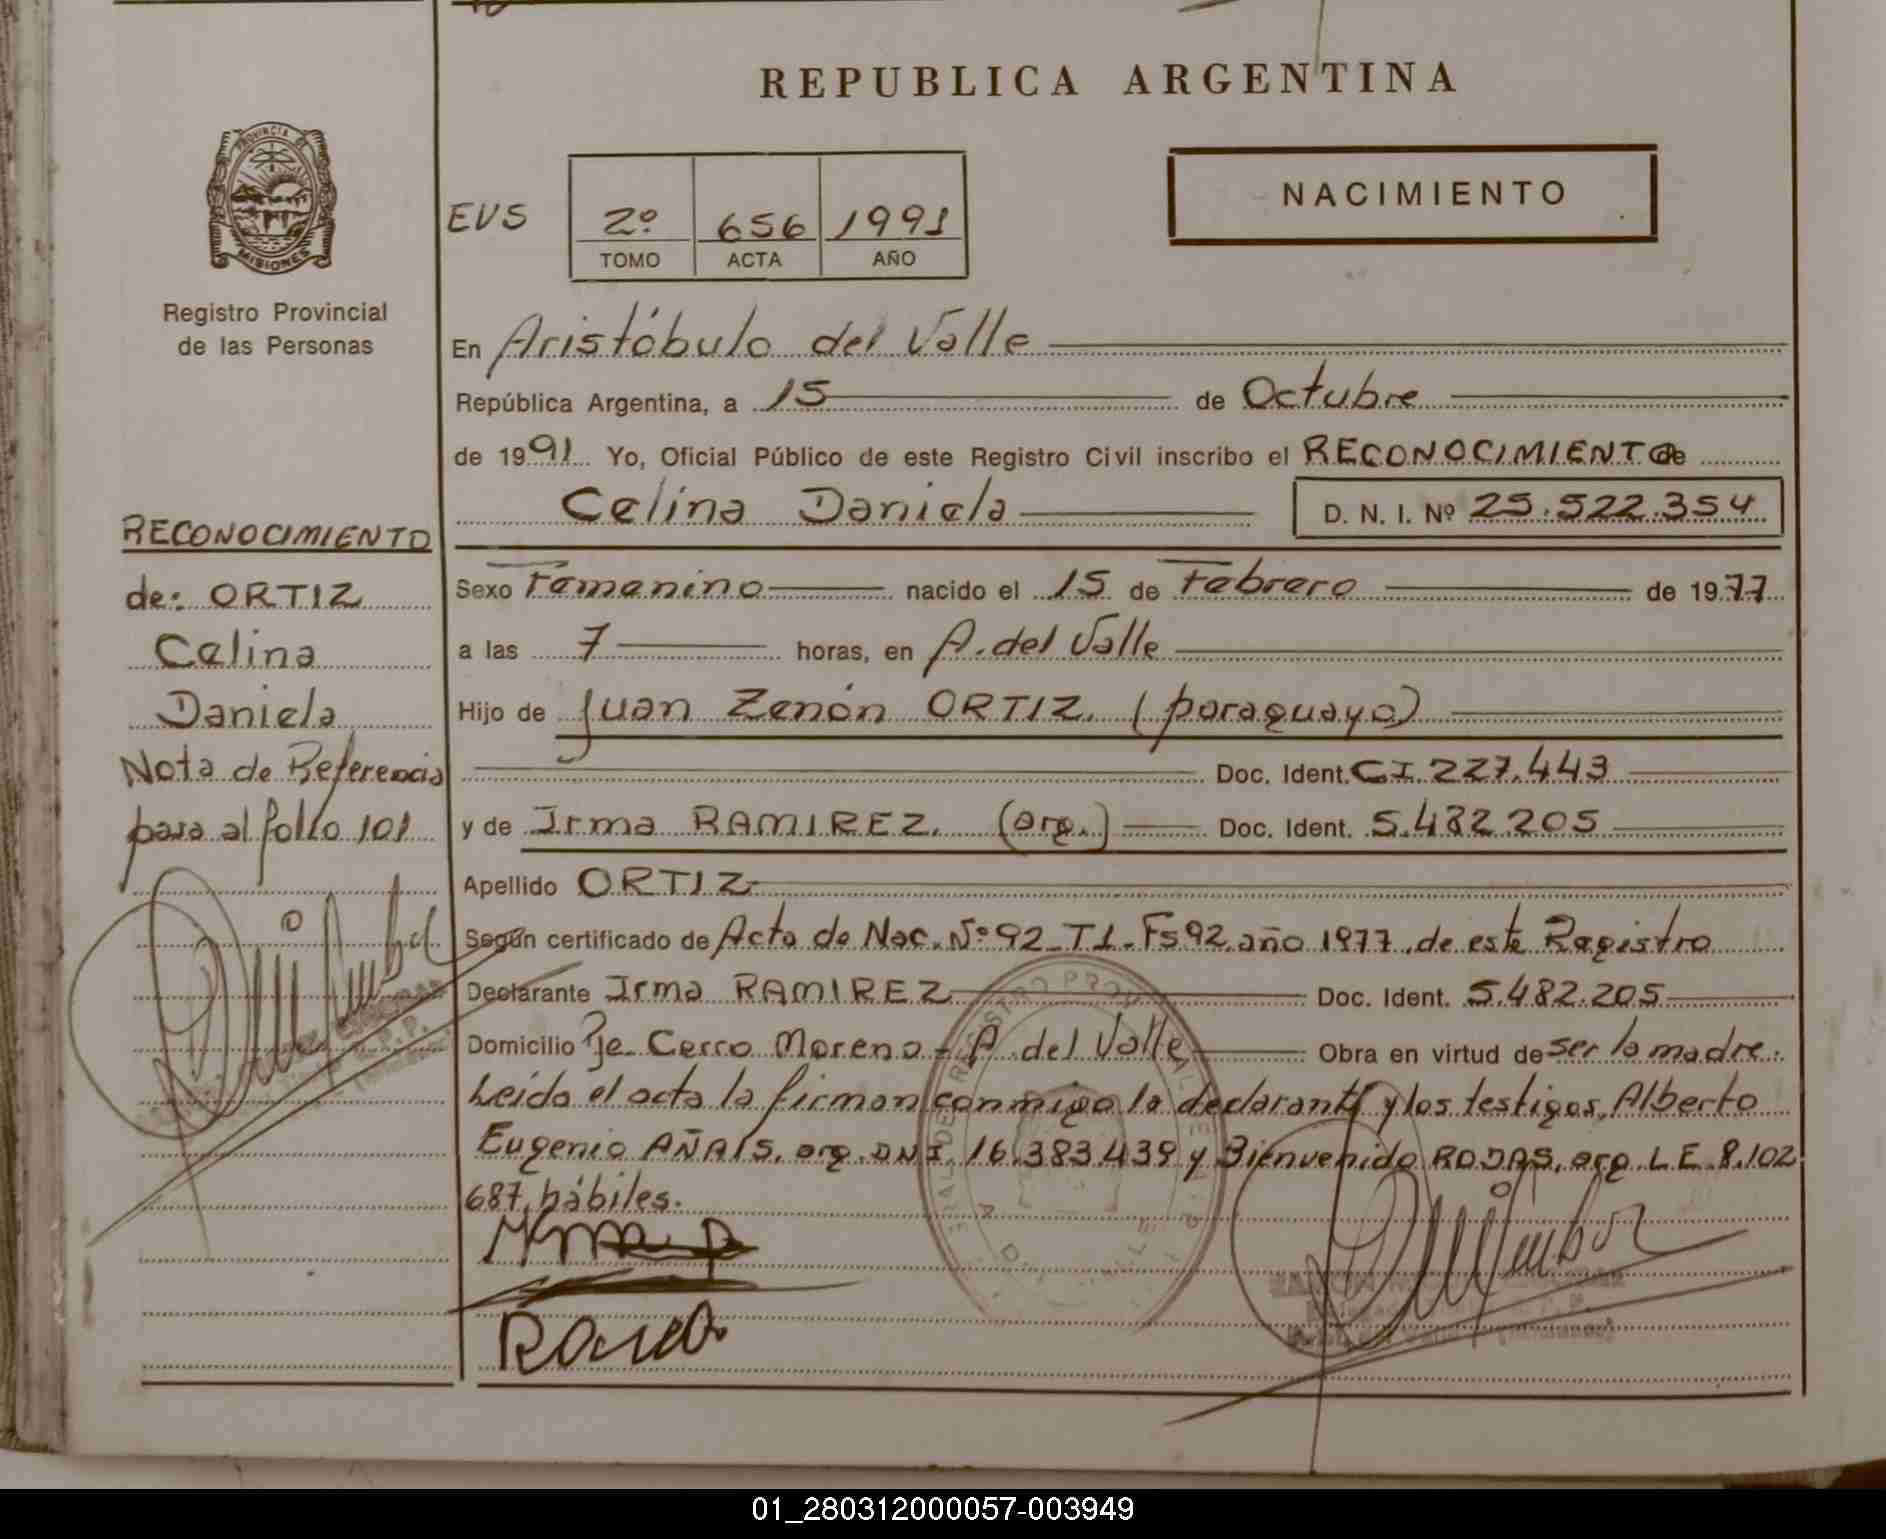 REPUBLICA ARGENTINA
PROVINCIA DE
MISIONES
Registro Provincial
de las Personas
EVS
2º 656 1991
TOMO ACTA AÑO
NACIMIENTO
En Aristóbulo del Valle
República Argentina, a 15 de Octubre
de 1991 Yo, Oficial Público de este Registro Civil inscribo el RECONOCIMIENTO de
Celina Daniela D. N. I. Nº 25.522.354
RECONOCIMIENTO
de: ORTIZ
Celina
Daniela
Nota de Referencia
para al folio 101
Sexo Femenino nacido el 15 de Febrero de 1977
a las 7 horas, en A. del Valle
Hijo de Juan Zenón ORTIZ. (paraguayo)
Doc. Ident. CI.227.443
y de Irma RAMIREZ. (arg.) Doc. Ident. 5.482.205
Apellido ORTIZ
Según certificado de Acta de Nac. Nº 92-T1-Fs 92 año 1977, de este Registro
Declarante Irma RAMIREZ Doc. Ident. 5.482.205
Domicilio Pje. Cerro Moreno - A. del Valle Obra en virtud de ser la madre.
Leída el acta la firman conmigo la declarante y los testigos, Alberto
Eugenio AÑAIS, arg. DNI. 16.383.439 y Bienvenido RODAS, arg. L.E. 8.102
687, hábiles.
01_280312000057-003949